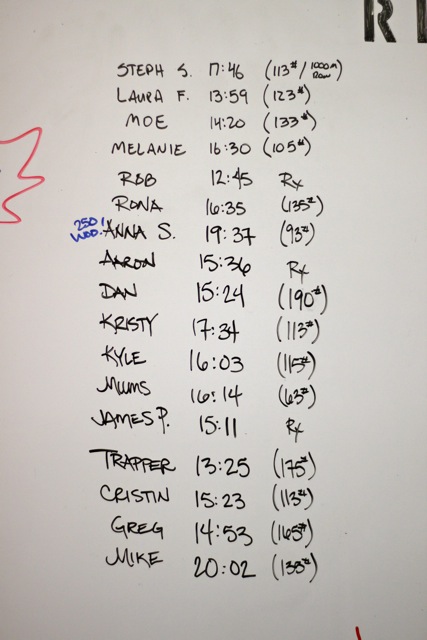 R
STEPH S. 17:46 (113#/1000m Row)
LAURA F. 13:59 (123#)
MOE 14:20 (133#)
MELANIE 16:30 (105#)
ROB 12:45 Rx
RONA 16:35 (135#)
250! WOD! ANNA S. 19:37 (93#)
AARON 15:36 Rx
DAN 15:24 (190#)
KRISTY 17:34 (113#)
KYLE 16:03 (115#)
MUMS 16:14 (63#)
JAMES P. 15:11 Rx
TRAPPER 13:25 (175#)
CRISTIN 15:23 (113#)
GREG 14:53 (165#)
MIKE 20:02 (138#)